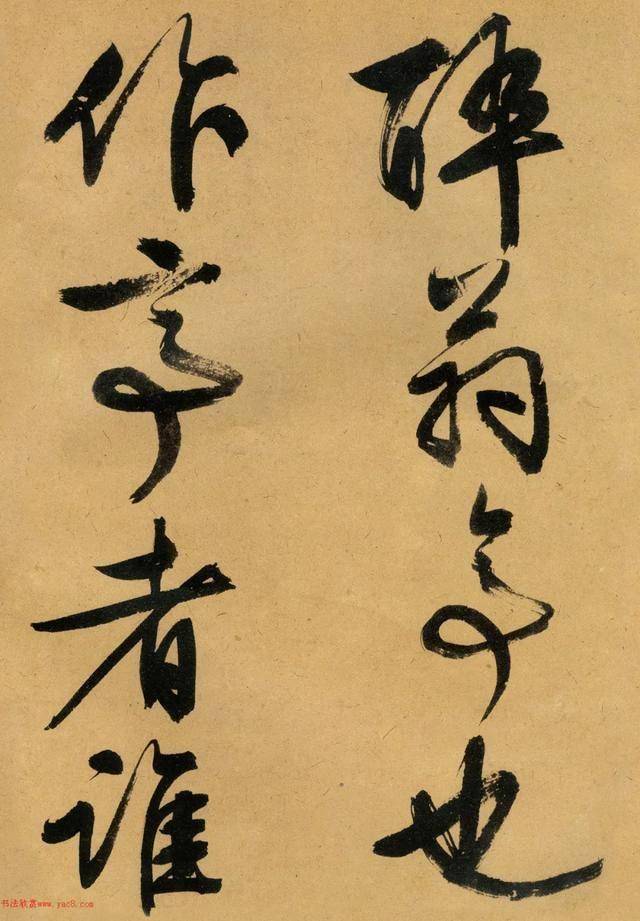 醉翁亭也
作亭者誰
书法欣赏www.yac8.com